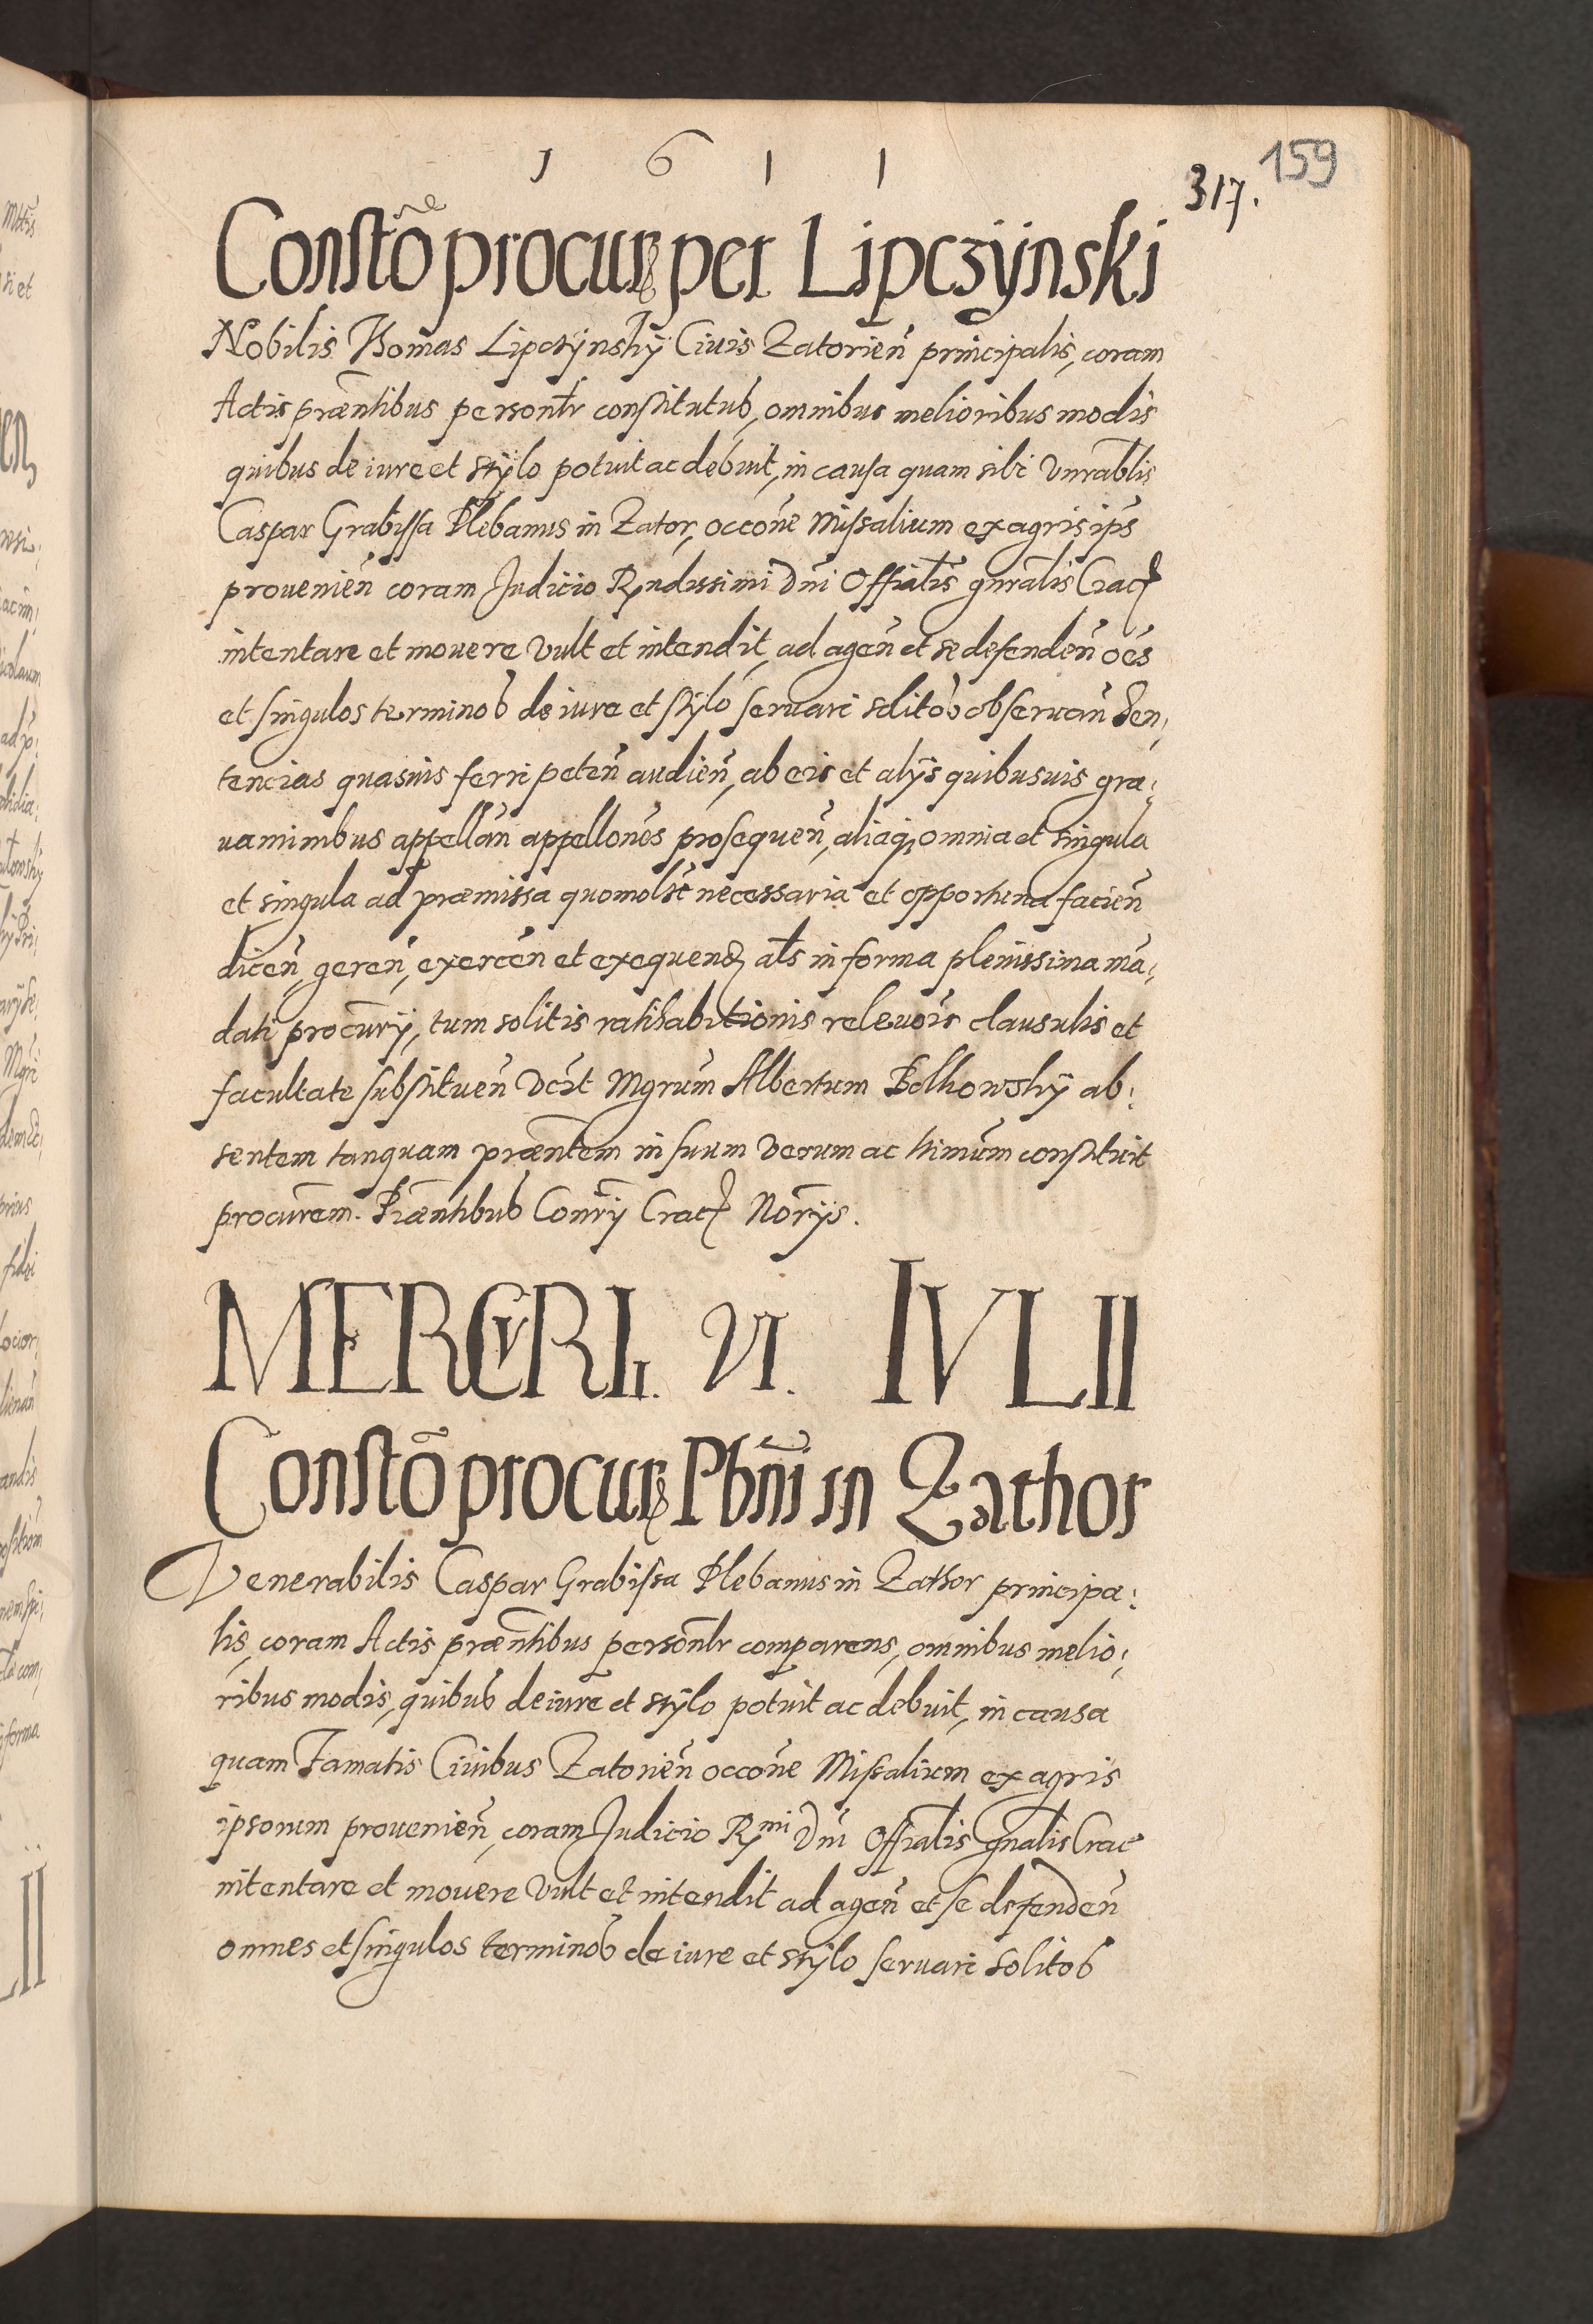 1 6 1 1
159
317.
Constõ procur per Lipczÿnski
Nobilis Thomas Lipczÿnskÿ Ciuis Zatorien̄ principalis, coram
Actis præn̄tibus person̄lr constitutus, omnibus melioribus modis
quibus de iure et stÿlo potuit ac debuit, in causa quam sibi Vnrab̄lis
Caspar Grabissa Plebanus in Zator, occōne Missalium ex agris ip̄s
prouenien̄ coram Judicio Rn̄dissimi Dn̄i Offial̄is gn̄ralis Crac
intentare et mouere vult et intendit, ad agen̄ et se defenden̄ oēs
et singulos terminos de iure et stÿlo seruari solitos obseruan̄ Sen,
tencias quasuis ferri peten̄ audien̄, ab eis et alÿs quibusuis gra:
uaminibus appellan̄ appellōnes prosequen̄, aliaq; omnia et singula
et singula ad præmissa quomol̄t necessaria et opportuna facien̄
dicen̄, geren̄, exercen̄ et exequen̄ al̄s in forma plenissima mā:
dati procur̄ÿ, tum solitis ratihabitionis releuōis clausulis et
facultate substituen̄ vc̄t Mgrum̄ Albertum Bolkowskÿ ab:
sentem tanquam præn̄tem in suum verum ac ltimūm constituit
procurēm. Præn̄tibus Con̄rÿ Crac Norÿs.
MERCVRII. VI. IVLII
Constõ procur Pbn̄i in Zathor
Venerabilis Caspar Grabissa Plebanus in Zathor principa:
lis, coram Actis præn̄tibus person̄lr comparens, omnibus melio:
ribus modis, quibus de iure et stÿlo potuit ac debuit, in causa
quam Famatis Ciuibus Zatorien̄ occōne Missalium ex agris
ipsorum prouenien̄, coram Judicio Rmi Dn̄i Offialis Gn̄alis Crac
intentare et mouere vult et intendit ad agen̄ et se defenden̄
omnes et singulos terminos de iure et stÿlo seruari solitos